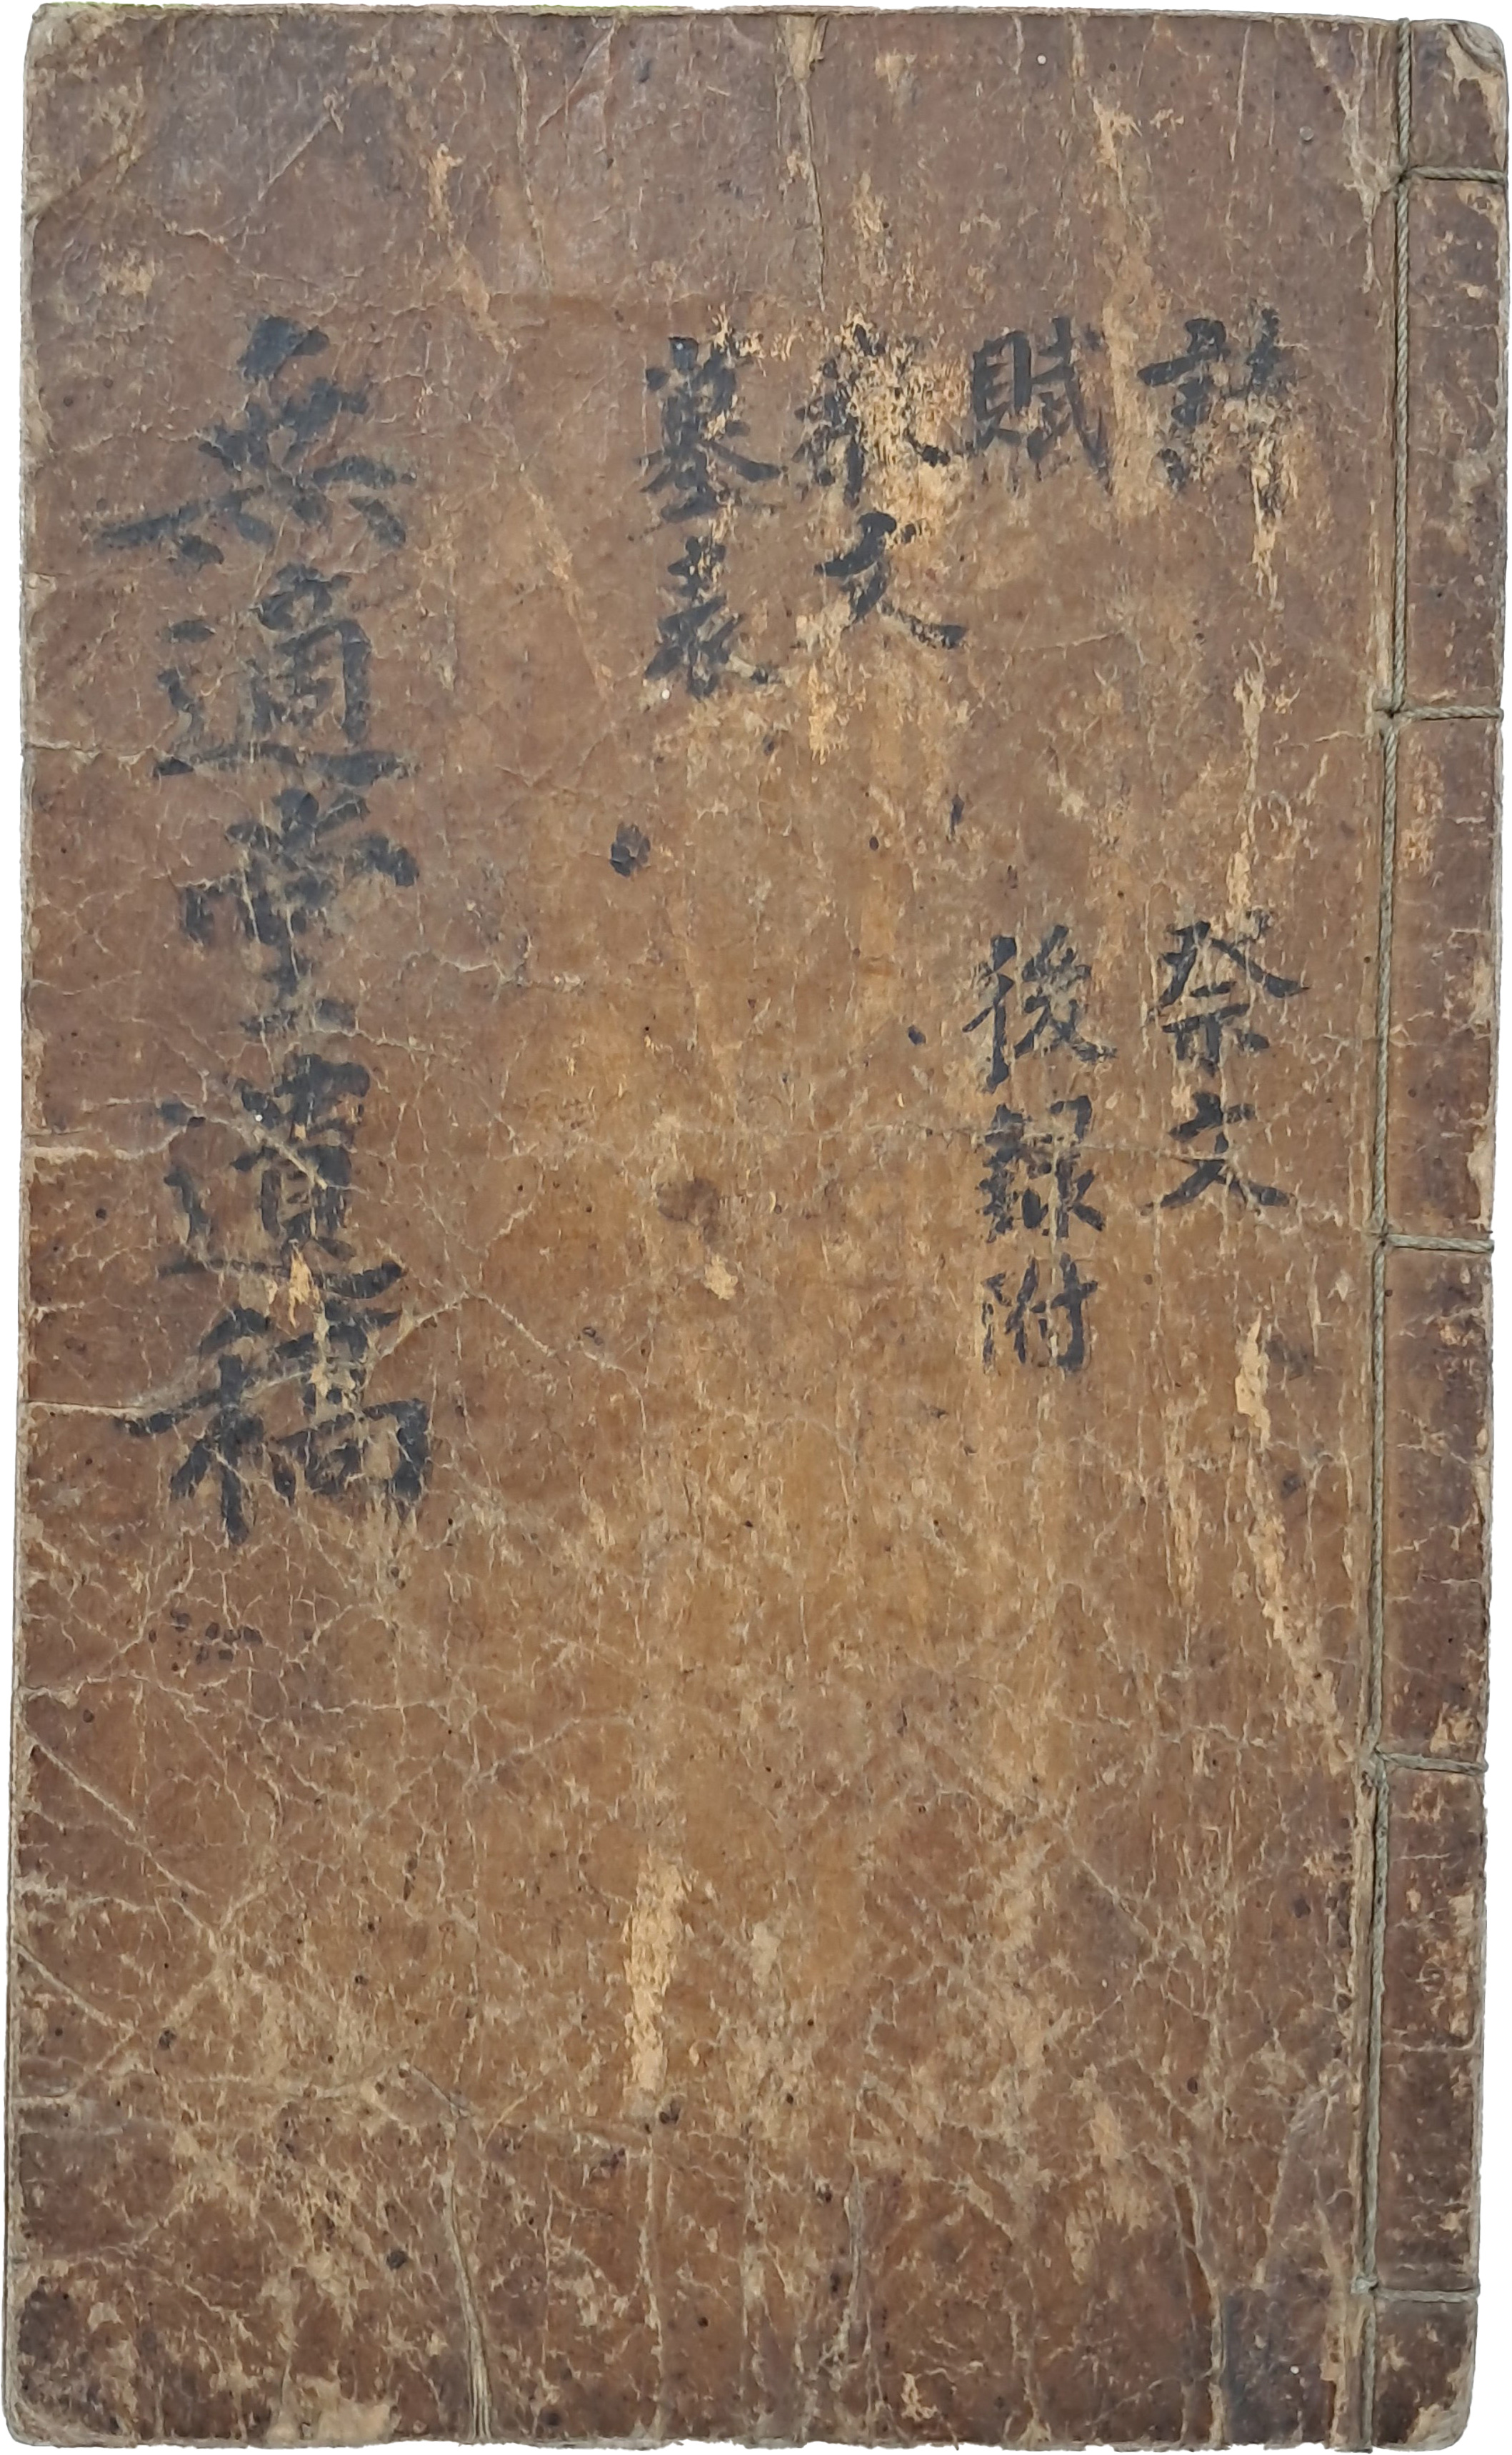 詩
賦
文
墓表
祭文
後錄附
無適堂遺稿